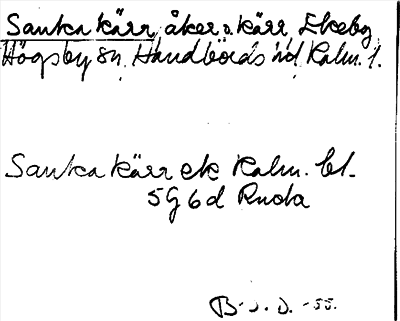 Sanka kärr, åker o. kärr, Ekeby
Högsby sn. Handbörds hd Kalm. l.
Sanka kärr ek Kalm. bl.
5G6d Ruda
B.J.D. -55.